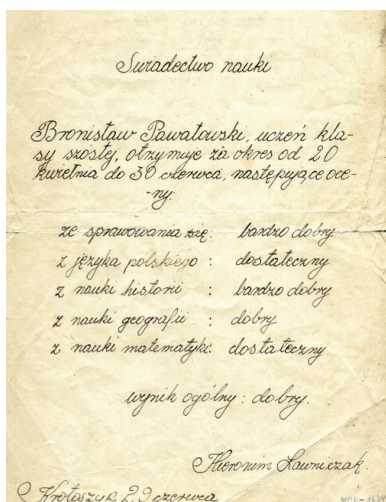 Świadectwo nauki
Bronisław Pawałowski, uczeń kla-
sy szóstej, otrzymuje za okres od 20
kwietnia do 30 czerwca, następujące oce-
-ny:
ze sprawowania się: bardzo dobry
z języka polskiego : dostateczny
z nauki historii : bardzo dobry
z nauki geografii : dobry
z nauki matematyk: dostateczny
wynik ogólny : dobry.
Hieronim Ławniczak
Krotoszyn 29 czerwca